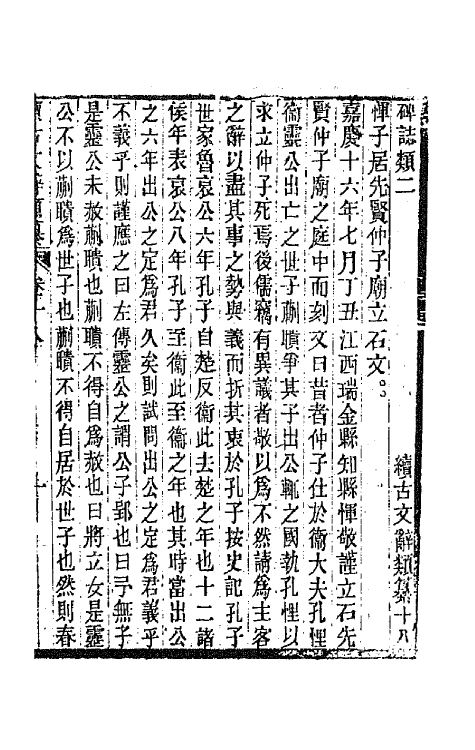 碑誌類二
續古文辭類纂十八
惲子居先賢仲子廟立石文。。
嘉慶十六年七月丁丑江西瑞金縣知縣惲敬謹立石先
賢仲子廟之庭中而刻文曰昔者仲子仕於衞大夫孔悝
衞靈公出亡之世子蒯聵爭其子出公輒之國執孔悝以
求立仲子死焉後儒竊有異議者敬以爲不然請爲主客
之辭以盡其事之勢與義而折其衷於孔子按史記孔子
世家魯哀公六年孔子自楚反衞此去楚之年也十二諸
侯年表哀公八年孔子至衞此至衞之年也其時當出公
之六年出公之定爲君久矣則試問出公之定爲君義乎
不義乎則謹應之曰左傳靈公之謂公子郢也曰予無子
是靈公未赦蒯聵也蒯聵不得自爲赦也曰將立女是靈
公不以蒯聵爲世子也蒯聵不得自居於世子也然則春